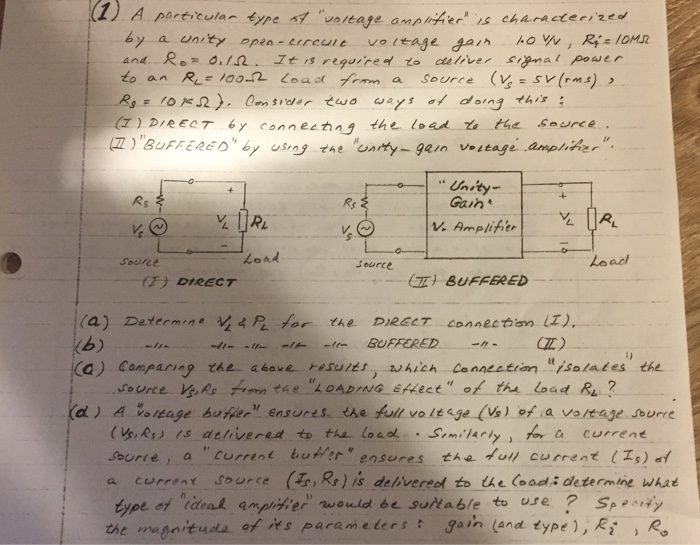 (1) A particular type of "voltage amplifier" is characterized
by a unity open-circuit voltage gain 1.0 V/V, Ri = 10MΩ
and Ro = 0.1Ω. It is required to deliver signal power
to an RL = 100Ω load from a source (Vs = 5V(rms),
Rs = 10KΩ). Consider two ways of doing this:
(I) DIRECT by connecting the load to the source.
(II) "BUFFERED" by using the "unity-gain voltage amplifier".
Rs
Vs
+
VL
-
RL
Source
Load
(I) DIRECT
Rs
Vs
"Unity-
Gain"
V. Amplifier
+
VL
-
RL
Source
Load
(II) BUFFERED
(a) Determine VL & PL for the DIRECT connection (I).
(b) -"- -"- -"- -"- -"- BUFFERED -"- (II)
(c) Comparing the above results, which connection "isolates" the
source Vs, Rs from the "LOADING Effect" of the load RL?
(d) A "voltage buffer" ensures the full voltage (Vs) of a voltage source
(Vs, Rs) is delivered to the load. Similarly, for a current
source, a "current buffer" ensures the full current (Is) of
a current source (Is, Rs) is delivered to the load: determine what
type of "ideal amplifier" would be suitable to use? Specify
the magnitude of its parameters: gain (and type), Ri, Ro